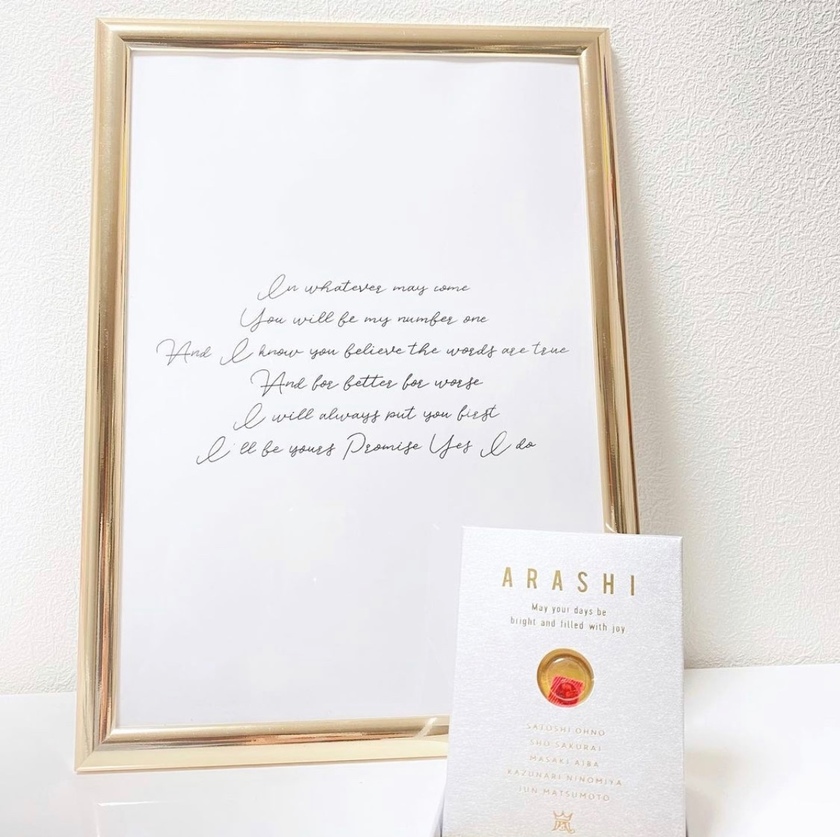 In whatever may come
You will be my number one
And I know you believe the words are true
And for better for worse
I will always put you first
I'll be yours Promise Yes I do
ARASHI
May your days be
bright and filled with joy
SATOSHI OHNO
SHO SAKURAI
MASAKI AIBA
KAZUNARI NINOMIYA
JUN MATSUMOTO